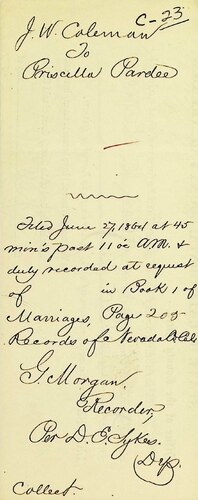 C-23
J. W. Coleman
To
Priscilla Pardee
Filed June 27, 1864 at 45
min's past 11 oc A.M. &
duly recorded at request
of in Book 1 of
Marriages, Page 205
Records of Nevada Co Cal
G. Morgan.
Recorder,
Per D. E. Sykes.
Dep.
Collect.